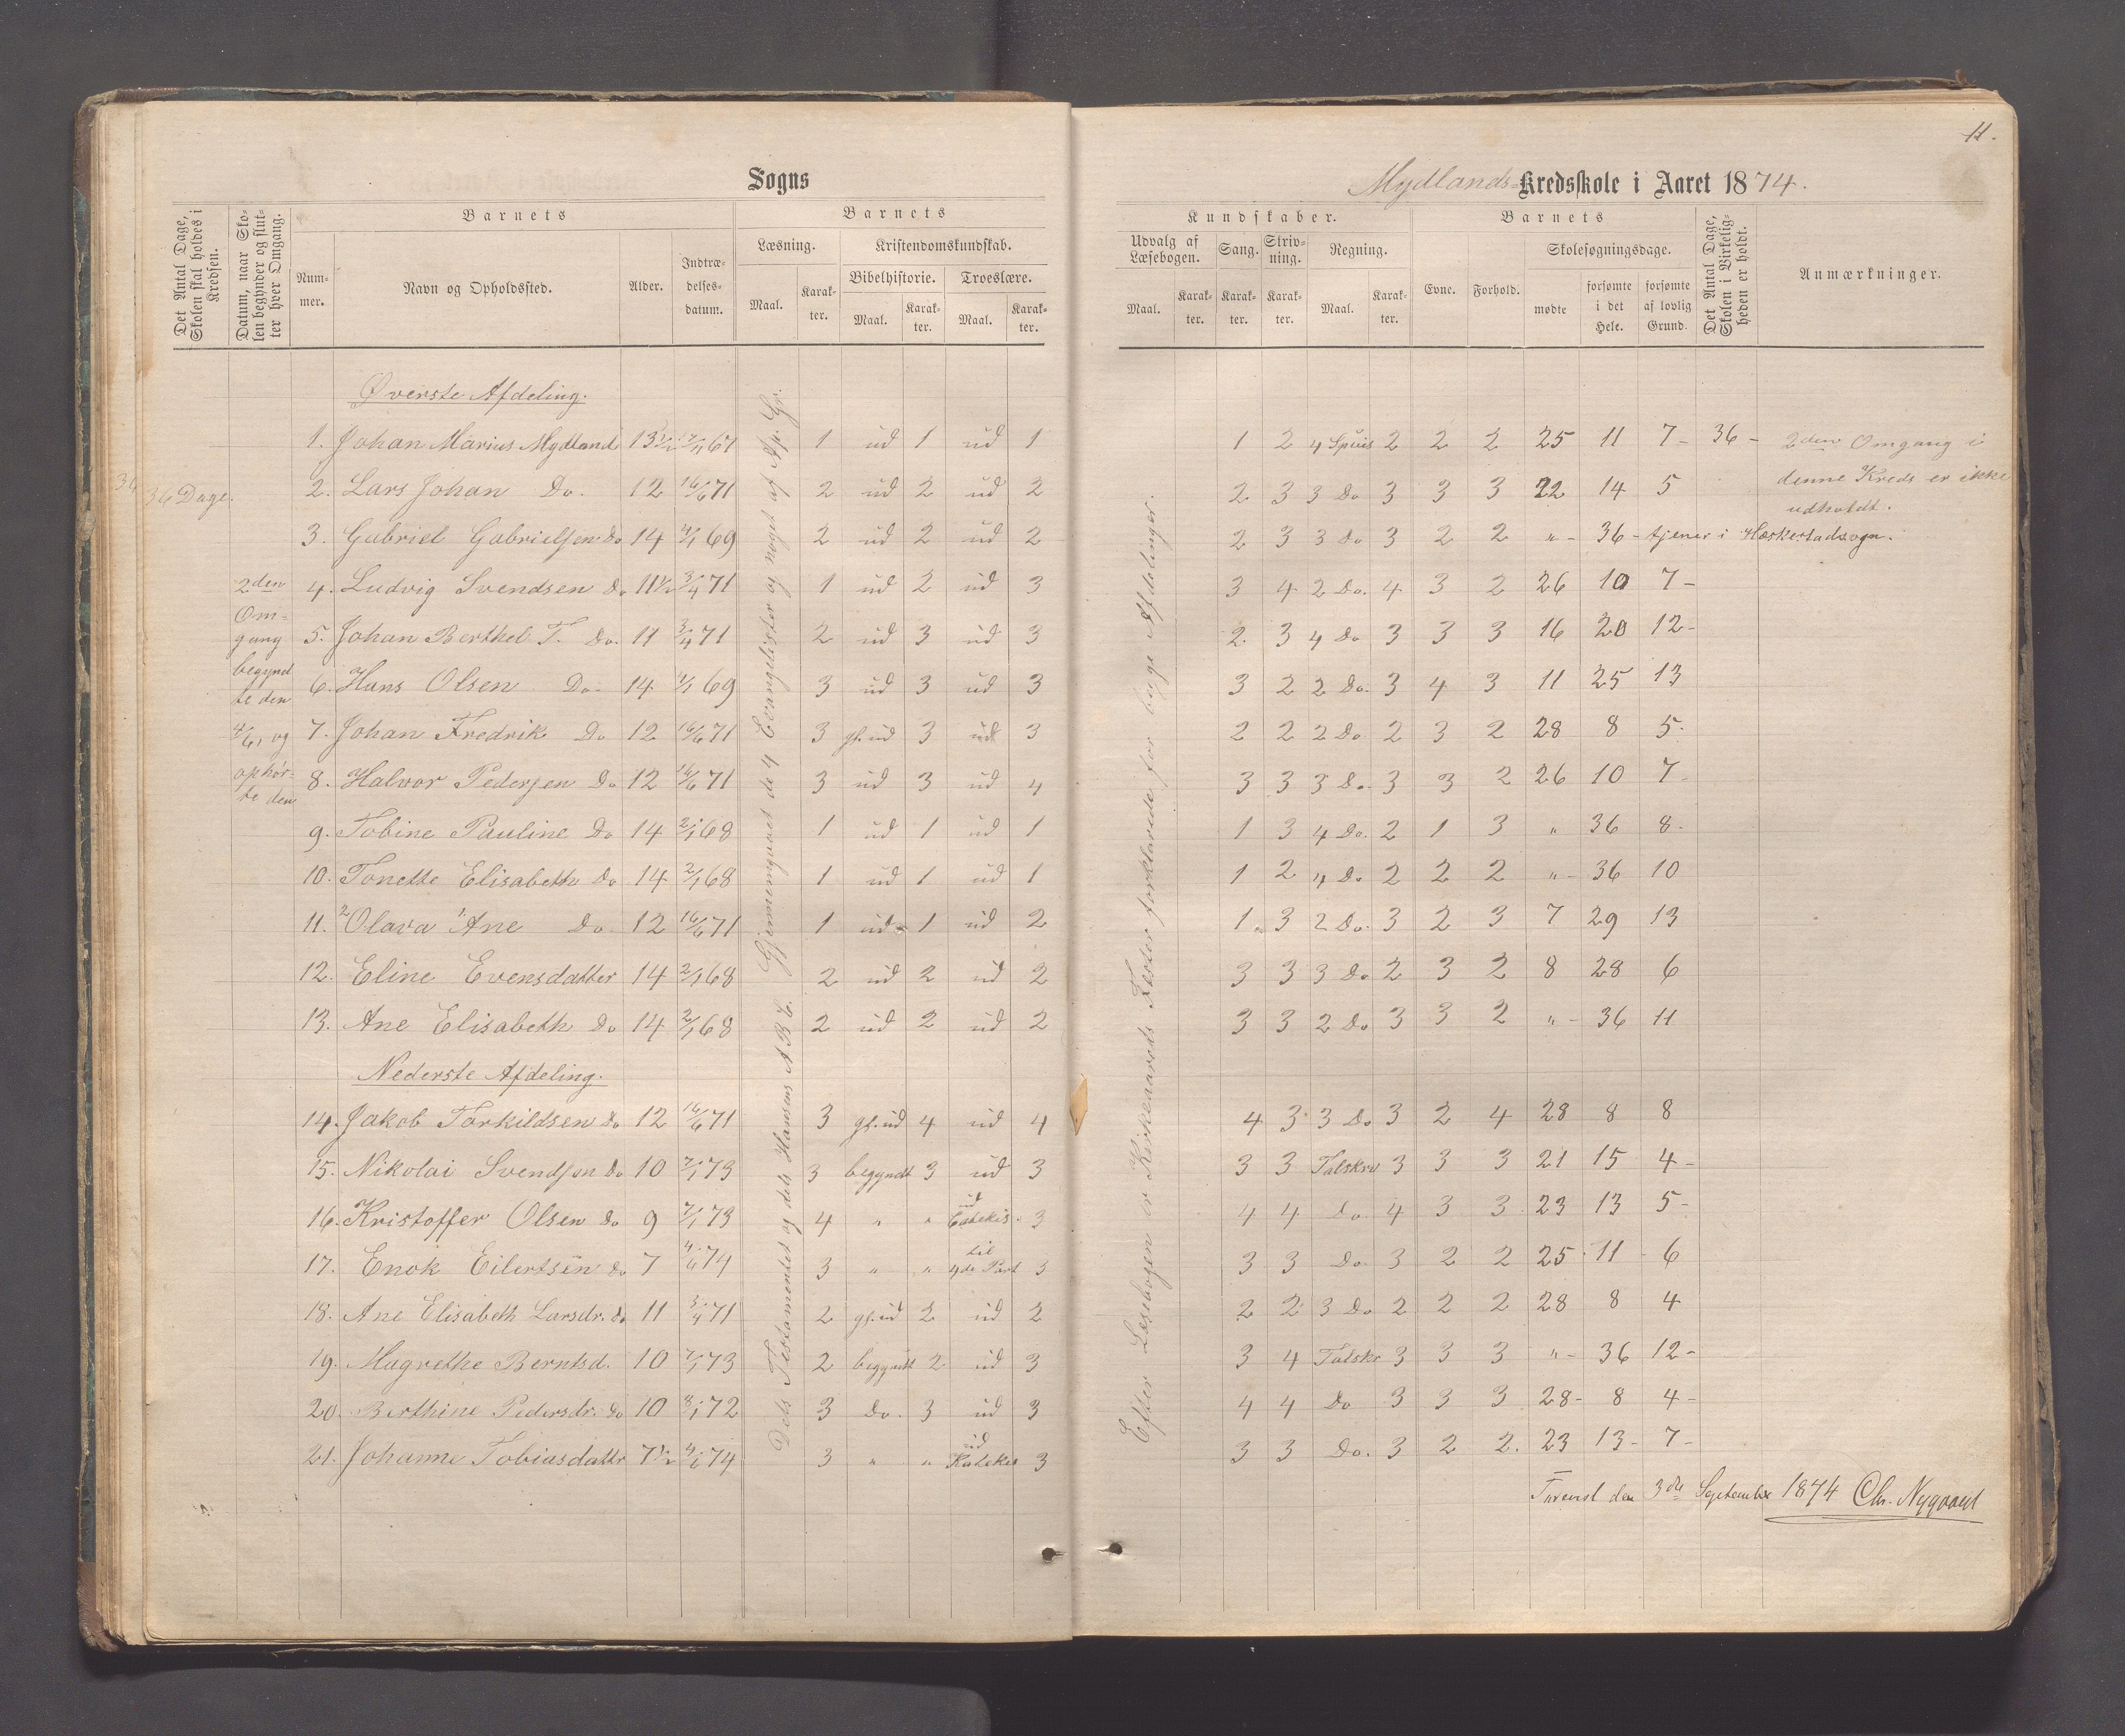 11.
Sogns
Mydlands-Kredsskole i Aaret 1874.
Det Antal Dage, Skolen skal holdes i Kredsen.
Datum, naar Skolen begynder og slutter hver Omgang.
Barnets
Nummer.
Navn og Opholdssted.
Alder.
Indtrædelsesdatum.
Barnets
Læsning.
Kristendomskundskab.
Bibelhistorie.
Troeslære.
Maal. Karakter. Maal. Karakter. Maal. Karakter.
Kundskaber.
Udvalg af Læsebogen.
Sang.
Skrivning.
Regning.
Maal. Karakter. Karakter. Karakter. Maal. Karakter.
Barnets
Evne. Forhold.
Skolesøgningsdage.
mødte
forsømte i det Hele.
forsømte af lovlig Grund.
Det Antal Dage, Skolen i Virkeligheden er holdt.
Anmærkninger.
Øverste Afdeling.
1. Johan Marius Mydland 13½ 67 1 ud 1 ud 1 1 2 4 Spiis 2 2 2 25 11 7 - 36 - 2den Omgang i
36 Dage. 2. Lars Johan Do. 12 16/6 71 2 ud 2 ud 2 2 3 3 Do 3 3 3 22 14 5 denne Kreds er ikke
udholdt.
3. Gabriel Gabrielsen Do 14 4/1 69 2 ud 2 ud 2 2 3 3 Do 3 2 2 " - 36 - tjener i Hæskestadsogn.
2den 4. Ludvig Svendsen Do 11½ 3/4 71 1 ud 2 ud 3 3 4 2 Do. 4 3 2 26 10 7 -
Om-
gang 5. Johan Berthel T. Do. 11 3/4 71 2 ud 3 ud 3 2 3 4 Do 3 3 3 16 20 12 -
begynd
te den 6. Hans Olsen Do. 14 4/1 69 3 ud 3 ud 3 3 2 2 Do. 3 4 3 11 25 13
4/6, og 7. Johan Fredrik Do 12 16/6 71 3 gl. ud 3 ud 3 2 2 2 Do 2 3 2 28 8 5
ophør-
te den 8. Halvor Pedersen Do 12 16/6 71 3 ud 3 ud 4 3 3 3 Do. 3 3 2 26 10 7
9. Tobine Pauline Do 14 2/1 68 1 ud 1 ud 1 1 3 4 Do. 2 1 3 " 36 8
10. Tonette Elisabeth Do 14 2/1 68 1 ud 1 ud 1 1 2 4 Do 2 2 2 " - 36 10
11. 2 Olava 1 Ane Do 12 16/6 71 1 ud 1 ud 2 1 3 2 Do. 3 2 3 7 29 13
12. Eline Evensdatter 14 2/1 68 2 ud 2 ud 2 3 3 3 Do 2 3 2 8 28 6
13. Ane Elisabeth Do 14 2/1 68 2 ud 2 ud 2 3 3 2 Do 3 3 2 " - 36 11
Nederste Afdeling.
14. Jakob Torkildsen Do 12 16/6 71 3 gl. ud 4 ud 4 4 3 3 Do 3 2 4 28 8 8
15. Nikolai Svendsen Do 10 7/1 73 3 begyndt 3 ud 3 3 3 Talskrv 3 3 3 21 15 4 -
16. Kristoffer Olsen Do 9 7/1 73 4 " " ud Catekis. 3 4 4 Do 4 3 3 23 13 5 -
17. Enok Eilertsen Do 7 4/6 74 3 " " til 4de Part 3 3 3 Do 3 2 2 25 11 6
18. Ane Elisabeth Larsdr. Do 11 3/4 71 2 gl. ud 2 ud 2 2 2 3 Do 2 2 2 28 8 4
19. Magrethe Berntsd. 10 7/1 73 2 begyndt 2 ud 3 3 4 Talskr 3 3 3 " - 36 12 -
20. Berthine Pedersdr. Do 10 72 3 Do. 3 ud 3 4 4 Do 3 3 3 28 - 8 4 -
21. Johanne Tobiasdattr 7½ 4/6 74 3 " " ud Katekis 3 3 3 Do. 3 2 2. 23 13 - 7 -
Dels Testamentet og dels Hansens A B C. Gjennemgaaet de 4 Evangelister og noget af Ap. Gr.
Efter Læsebogen er Kirkeaarets Fester forklarede for begge Afdelinger.
den 3de September 1874 Chr. Nygaard